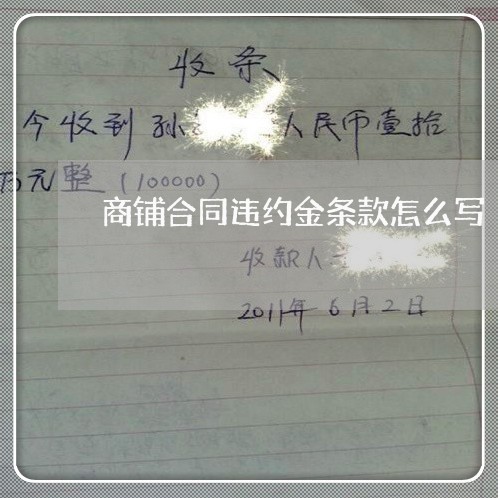 收条
今收到孙 人民币壹拾
万元整(100000)
商铺合同违约金条款怎么写
收款人
2011年6月2日